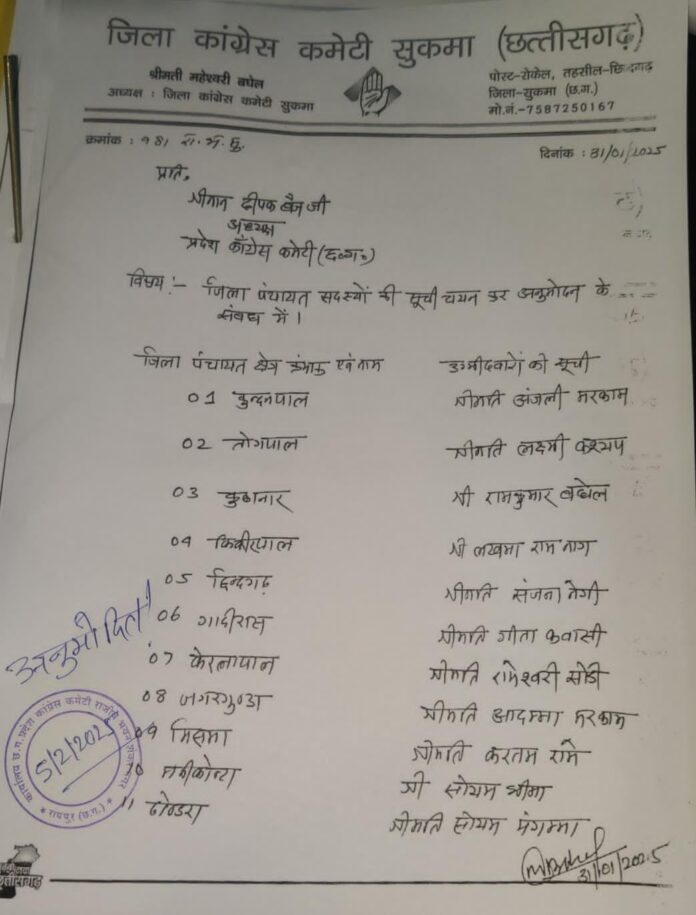 जिला कांग्रेस कमेटी सुकमा (छत्तीसगढ़)
श्रीमती महेश्वरी बघेल
अध्यक्ष : जिला कांग्रेस कमेटी सुकमा
पोस्ट-रोकेल, तहसील-छिन्दगढ़
जिला-सुकमा (छ.ग.)
मो.नं.-7587250167
क्रमांक : 181
दिनांक : 31/01/2025
प्रति,
श्रीमान दीपक बैज जी
अध्यक्ष
प्रदेश काँग्रेस कमेटी (छ०ग०)
विषय :- जिला पंचायत सदस्यों की सूची चयन कर अनुमोदन के
संबंध में ।
जिला पंचायत क्षेत्र क्रमांक एवं नाम उम्मीदवारों की सूची
01 कुन्दनपाल श्रीमति अंजली मरकाम
02 तोंगपाल श्रीमति लक्ष्मी कश्यप
03 कुकानार श्री रामकुमार बघेल
04 किकीरपाल श्री लखमा राम नाग
05 छिन्दगढ़ श्रीमति संजना नेगी
06 गादीरास श्रीमति गीता कवासी
07 केरलापाल श्रीमति रामेश्वरी सोडी
08 जगरगुण्डा श्रीमति आदम्मा मरकाम
09 मिसमा श्रीमति करतम रामे
10 श्री सोयम भीमा
11 ढोण्डरा श्रीमति सोयम मंगम्मा
अनुमोदित!
कार्यालय छ.ग. प्रदेश कांग्रेस कमेटी राजीव भवन
रायपुर (छ.ग.)
5/2/2025
31/01/2025
छत्तीसगढ़